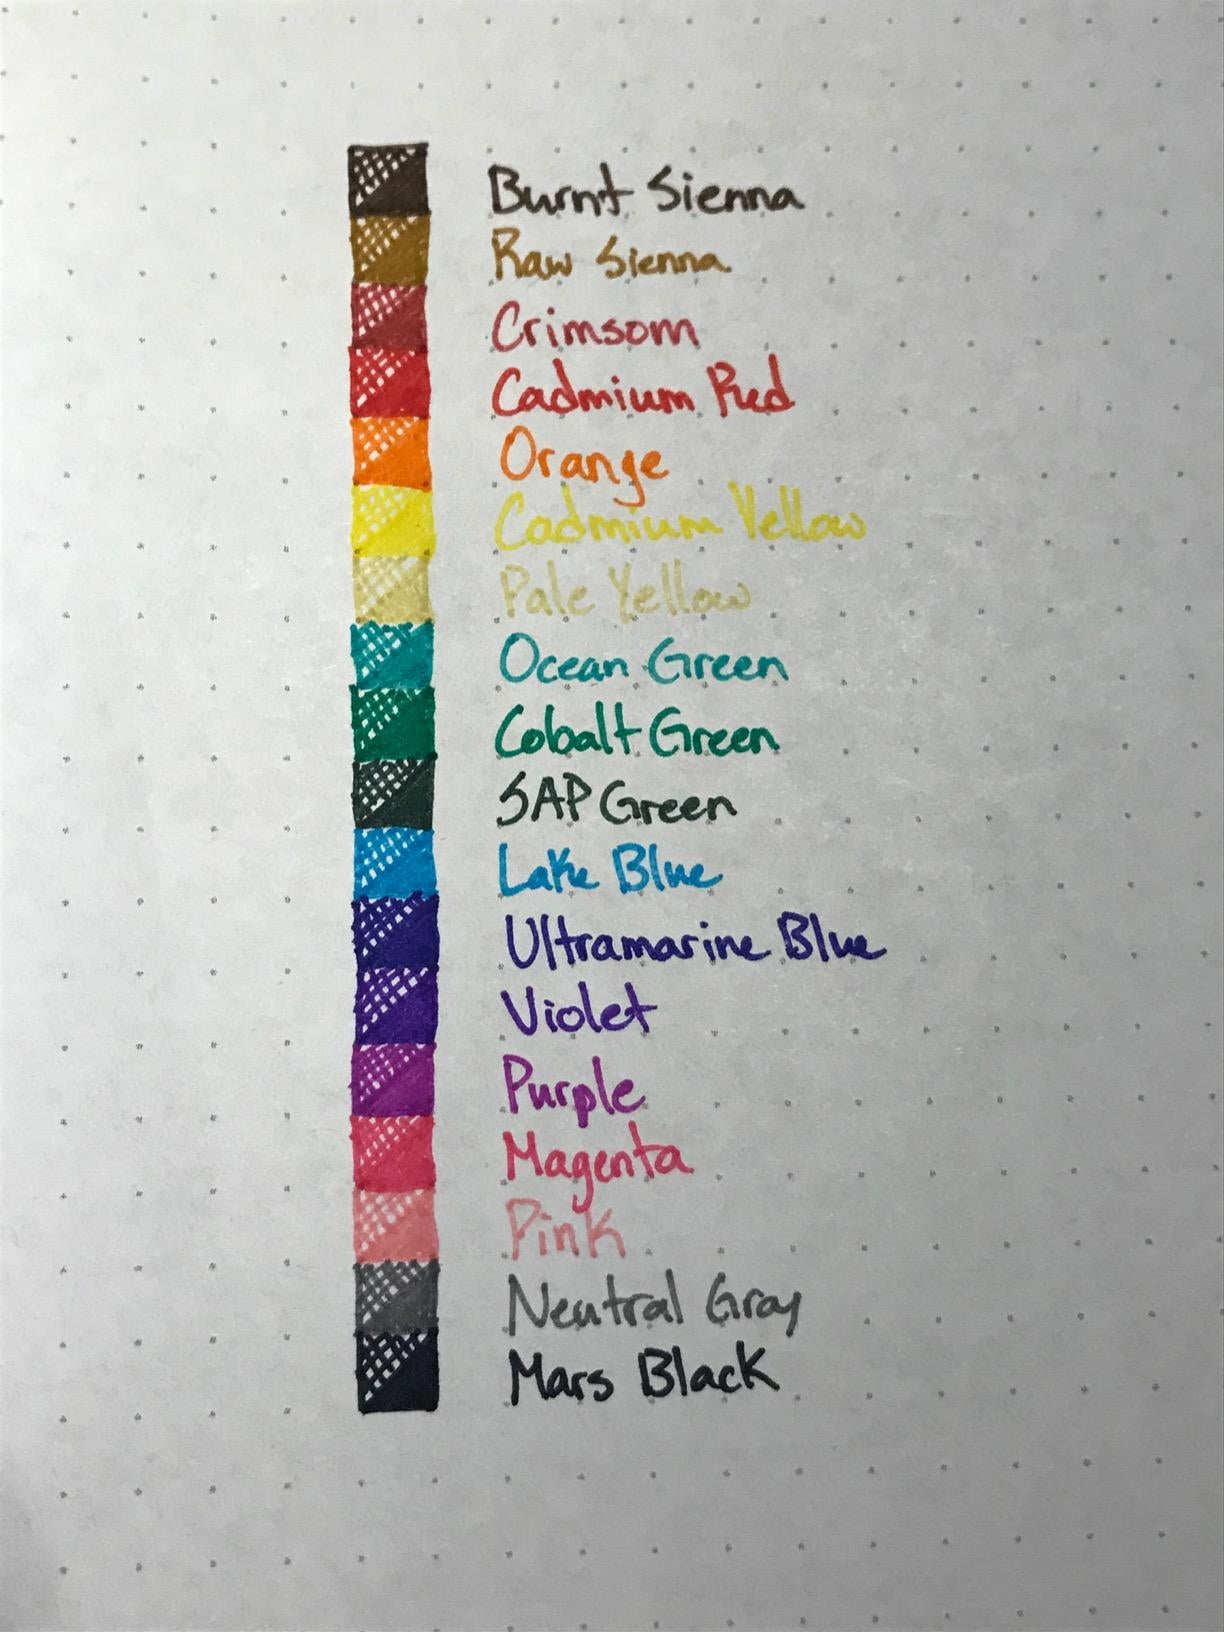 Burnt Sienna
Raw Sienna
Crimsom
Cadmium Red
Orange
Cadmium Yellow
Pale Yellow
Ocean Green
Cobalt Green
SAP Green
Lake Blue
Ultramarine Blue
Violet
Purple
Magenta
Pink
Neutral Gray
Mars Black